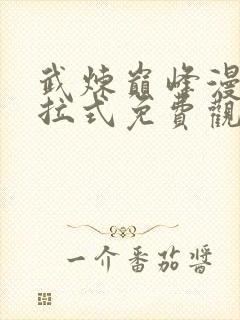 武煉巔峰漫
拉式免費觀
一介番茄醬